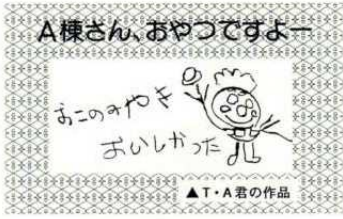 A棟さん、おやつですよー
おこのみやき
おいしかった
▲T・A君の作品